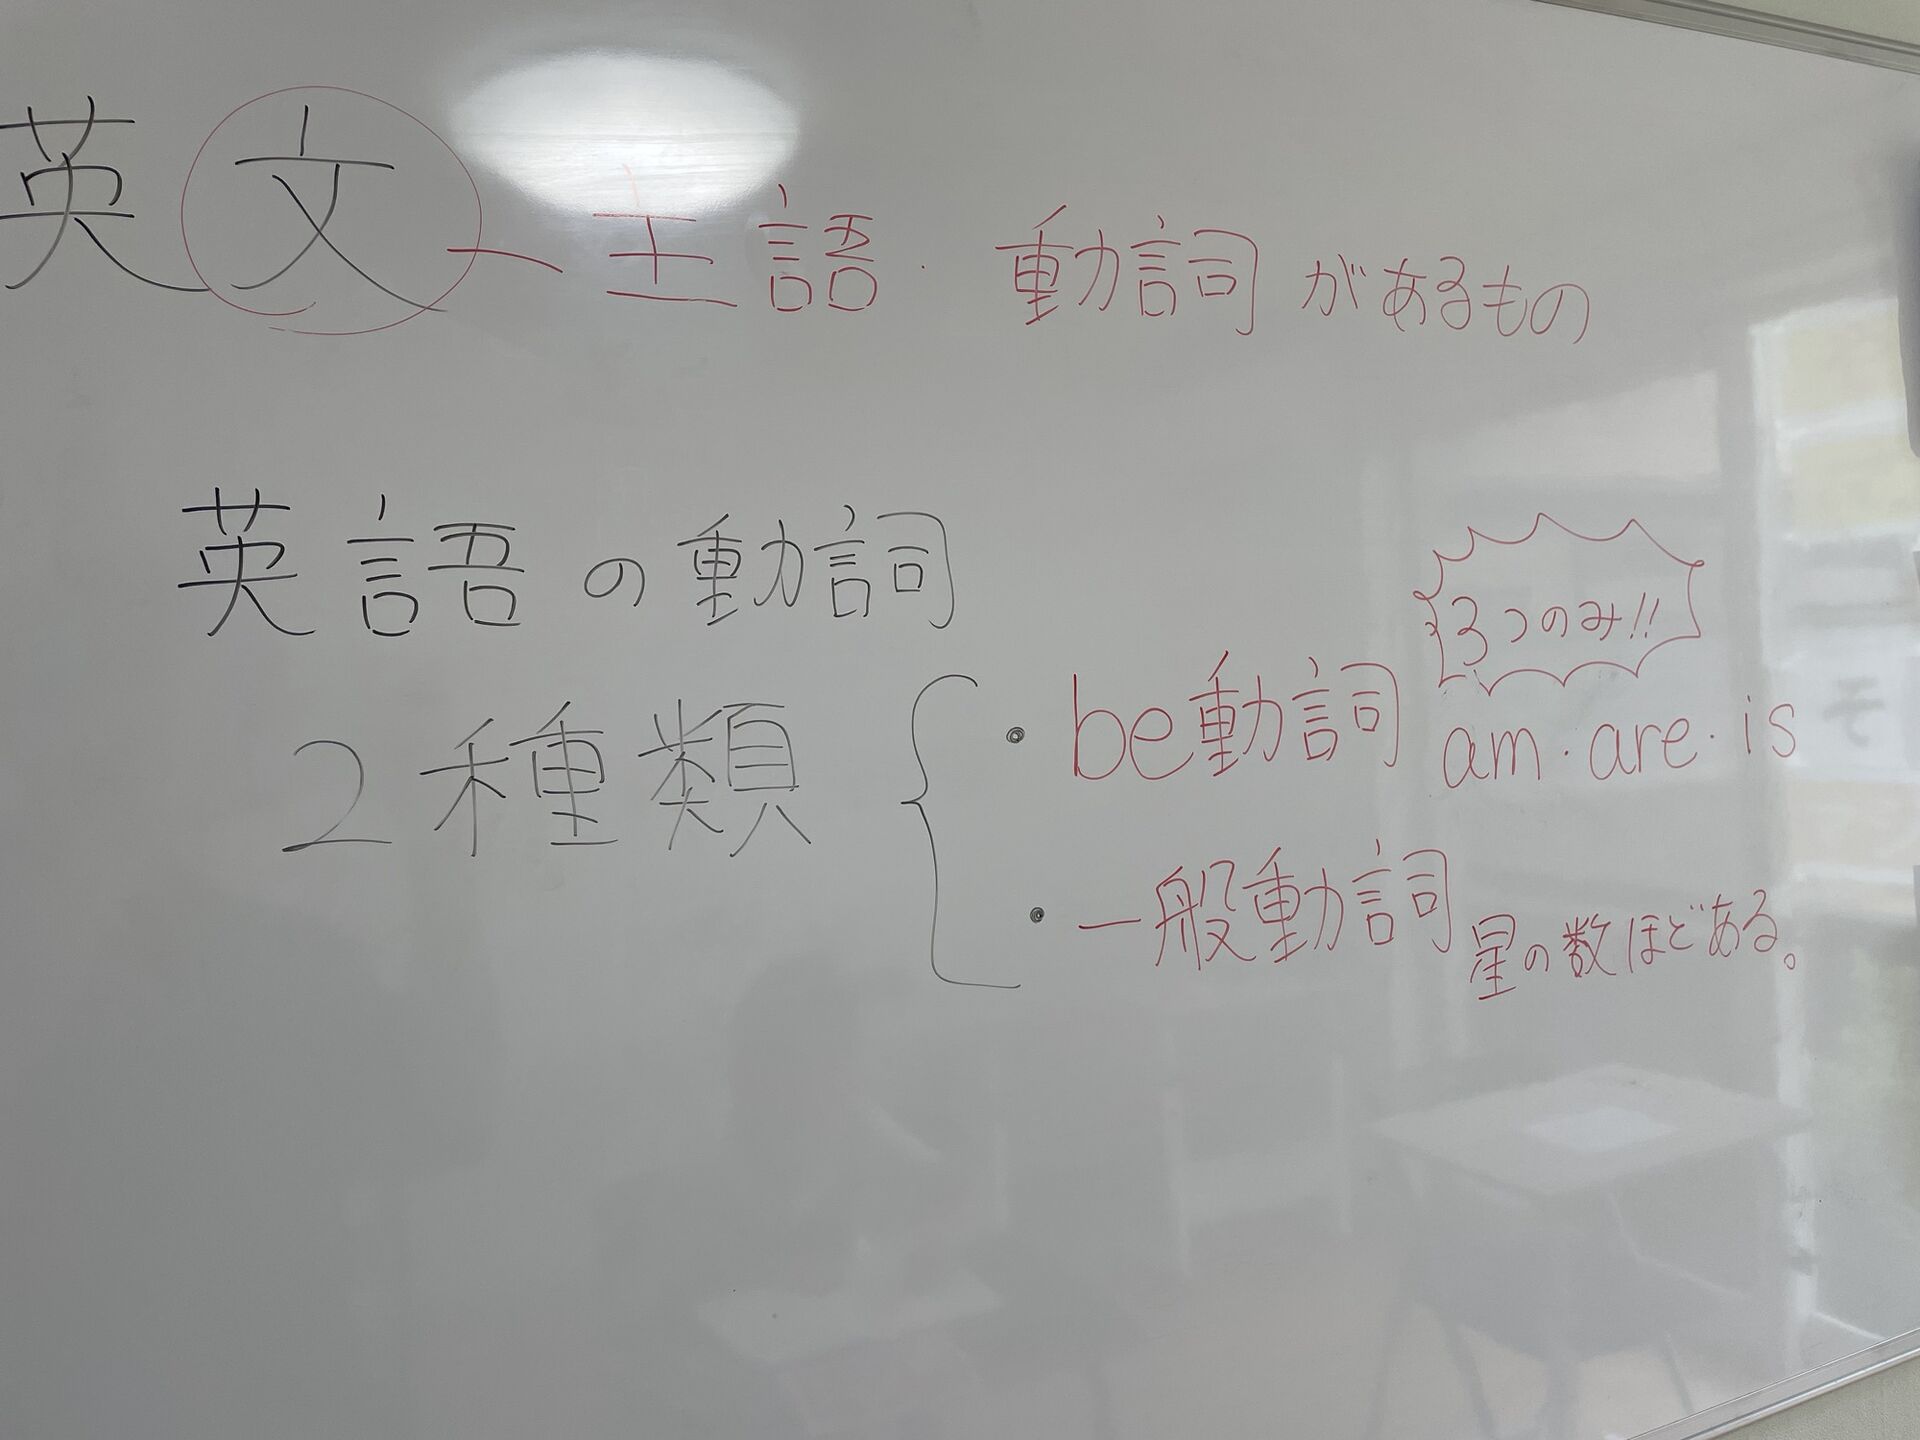 英文 主語・動詞があるもの
英語の動詞
3つのみ!!
2種類
・be動詞 am・are・is
・一般動詞 星の数ほどある。